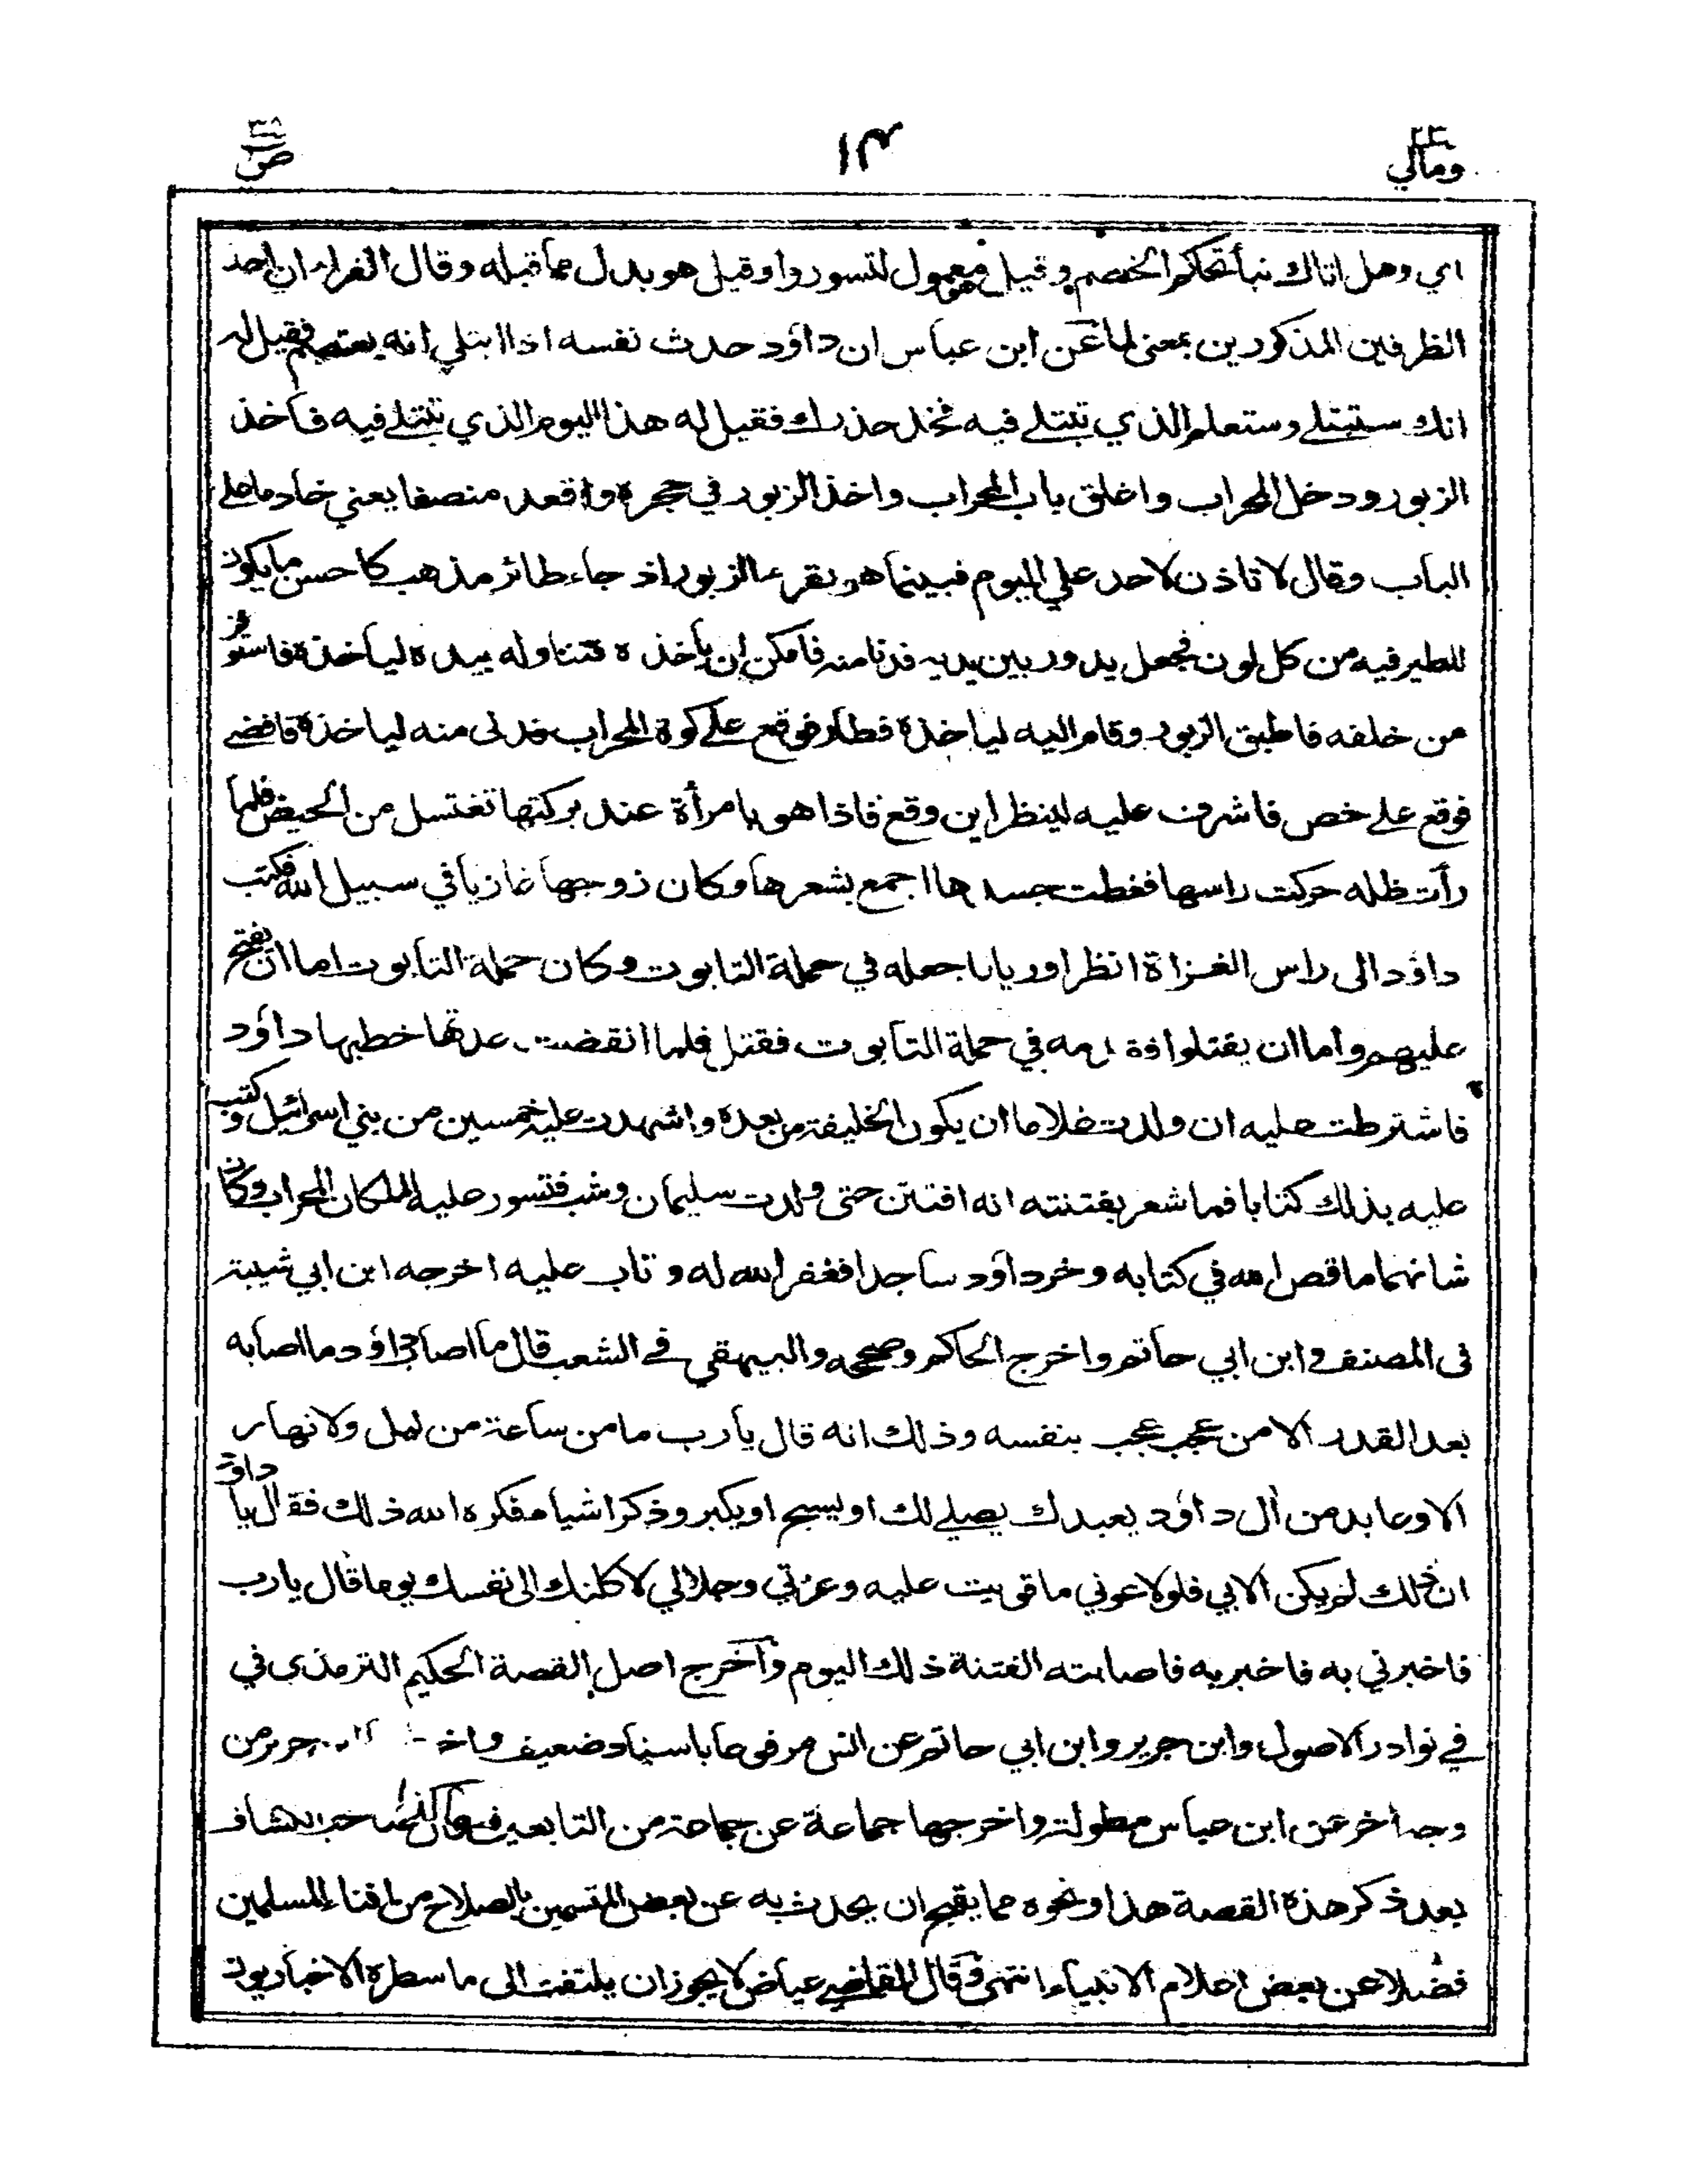 ومالي ٢٣
١٤
ص ٣٨
اي وهل اتاك نبأ تحاكم الخصم وقيل معمول لتسوروا وقيل هو بدل مما قبله وقال الفراء ان احد
الظرفين المذكورين بمعنى لما عن ابن عباس ان داؤد حدث نفسه اذا ابتلي انه يعتصم فقيل له
انك ستبتلے وستعلم الذي تبتلے فيه فخذ حذرك فقيل له هذا اليوم الذي تبتلے فيه فاخذ
الزبور ودخل المحراب واغلق باب المحراب واخذ الزبور في حجرة واقعد منصفا يعني خادما على
الباب وقال لا تاذن لاحد علي اليوم فبينما هو يقرء الزبور اذ جاء طائر مذهب كاحسن ما يكون
للطير فيه من كل لون فجعل يدور بين يديه فدنا منه فامكن ان ياخذه فتناوله بيده لياخذة فاستوفز
من خلفه فاطبق الزبور وقام اليه لياخذة فطار فوقع علے كوة المحراب فدلى منه لياخذة فافضے
فوقع علے خص فاشرف عليه لينظر اين وقع فاذا هو بامرأة عند بركتها تغتسل من الحيض فلما
رأت ظله حركت راسها فغطت جسدها اجمع بشعرها وكان زوجها غازيا في سبيل الله فكتب
داؤد الى راس الغزاة انظر اوريا فاجعله في حملة التابوت وكان حملة التابوت اما ان يفتح
عليهم واما ان يقتلوا فقدمه في حملة التابوت فقتل فلما انقضت عدتها خطبها داؤد
فاشترطت عليه ان ولدت غلاما ان يكون الخليفة من بعدة واشهدت عليه خمسين من بني اسرائيل وكتبت
عليه بذلك كتابا فما شعر بفتنته انه افتتن حتى ولدت سليمان وشب فتسور عليه الملكان المحراب وكان
شانهما ما قص الله في كتابه وخر داؤد ساجدا فغفر الله له وتاب عليه اخرجه ابن ابي شيبة
فى المصنف وابن ابي حاتم واخرج الحاكم وصححه والبيهقي في الشعب قال ما اصاب داؤد ما اصابه
بعد القدر الا من عجب عجب بنفسه وذلك انه قال يارب ما من ساعة من ليل ولا نهار
الا وعابد من أل داؤد يعبدك يصلے لك او يسبح او يكبر وذكر اشياء فكره الله ذلك فقال يا داؤد
ان ذلك لم يكن الا بي فلولا عوني ما قويت عليه وعزتي وجلالي لا كلنك الى نفسك يوما قال يارب
فاخبرني به فاخبر به فاصابته الفتنة ذلك اليوم وأخرج اصل القصة الحكيم الترمذى في
في نوادر الاصول وابن جرير وابن ابي حاتم عن انس مرفوعا باسناد ضعيف جرير من
وجه أخر عن ابن عباس مطولة واخرجها جماعة عن جماعة من التابعين صاحب الكشاف
بعد ذكر هذة القصة هذا ونحوه مما يقبح ان يحدث به عن بعض المتسمين بالصلاح من افناء المسلمين
فضلا عن بعض اعلام الانبياء انتهى وقال القاضي عياض لا يجوز ان يلتفت الى ما سطرة الاخباريون